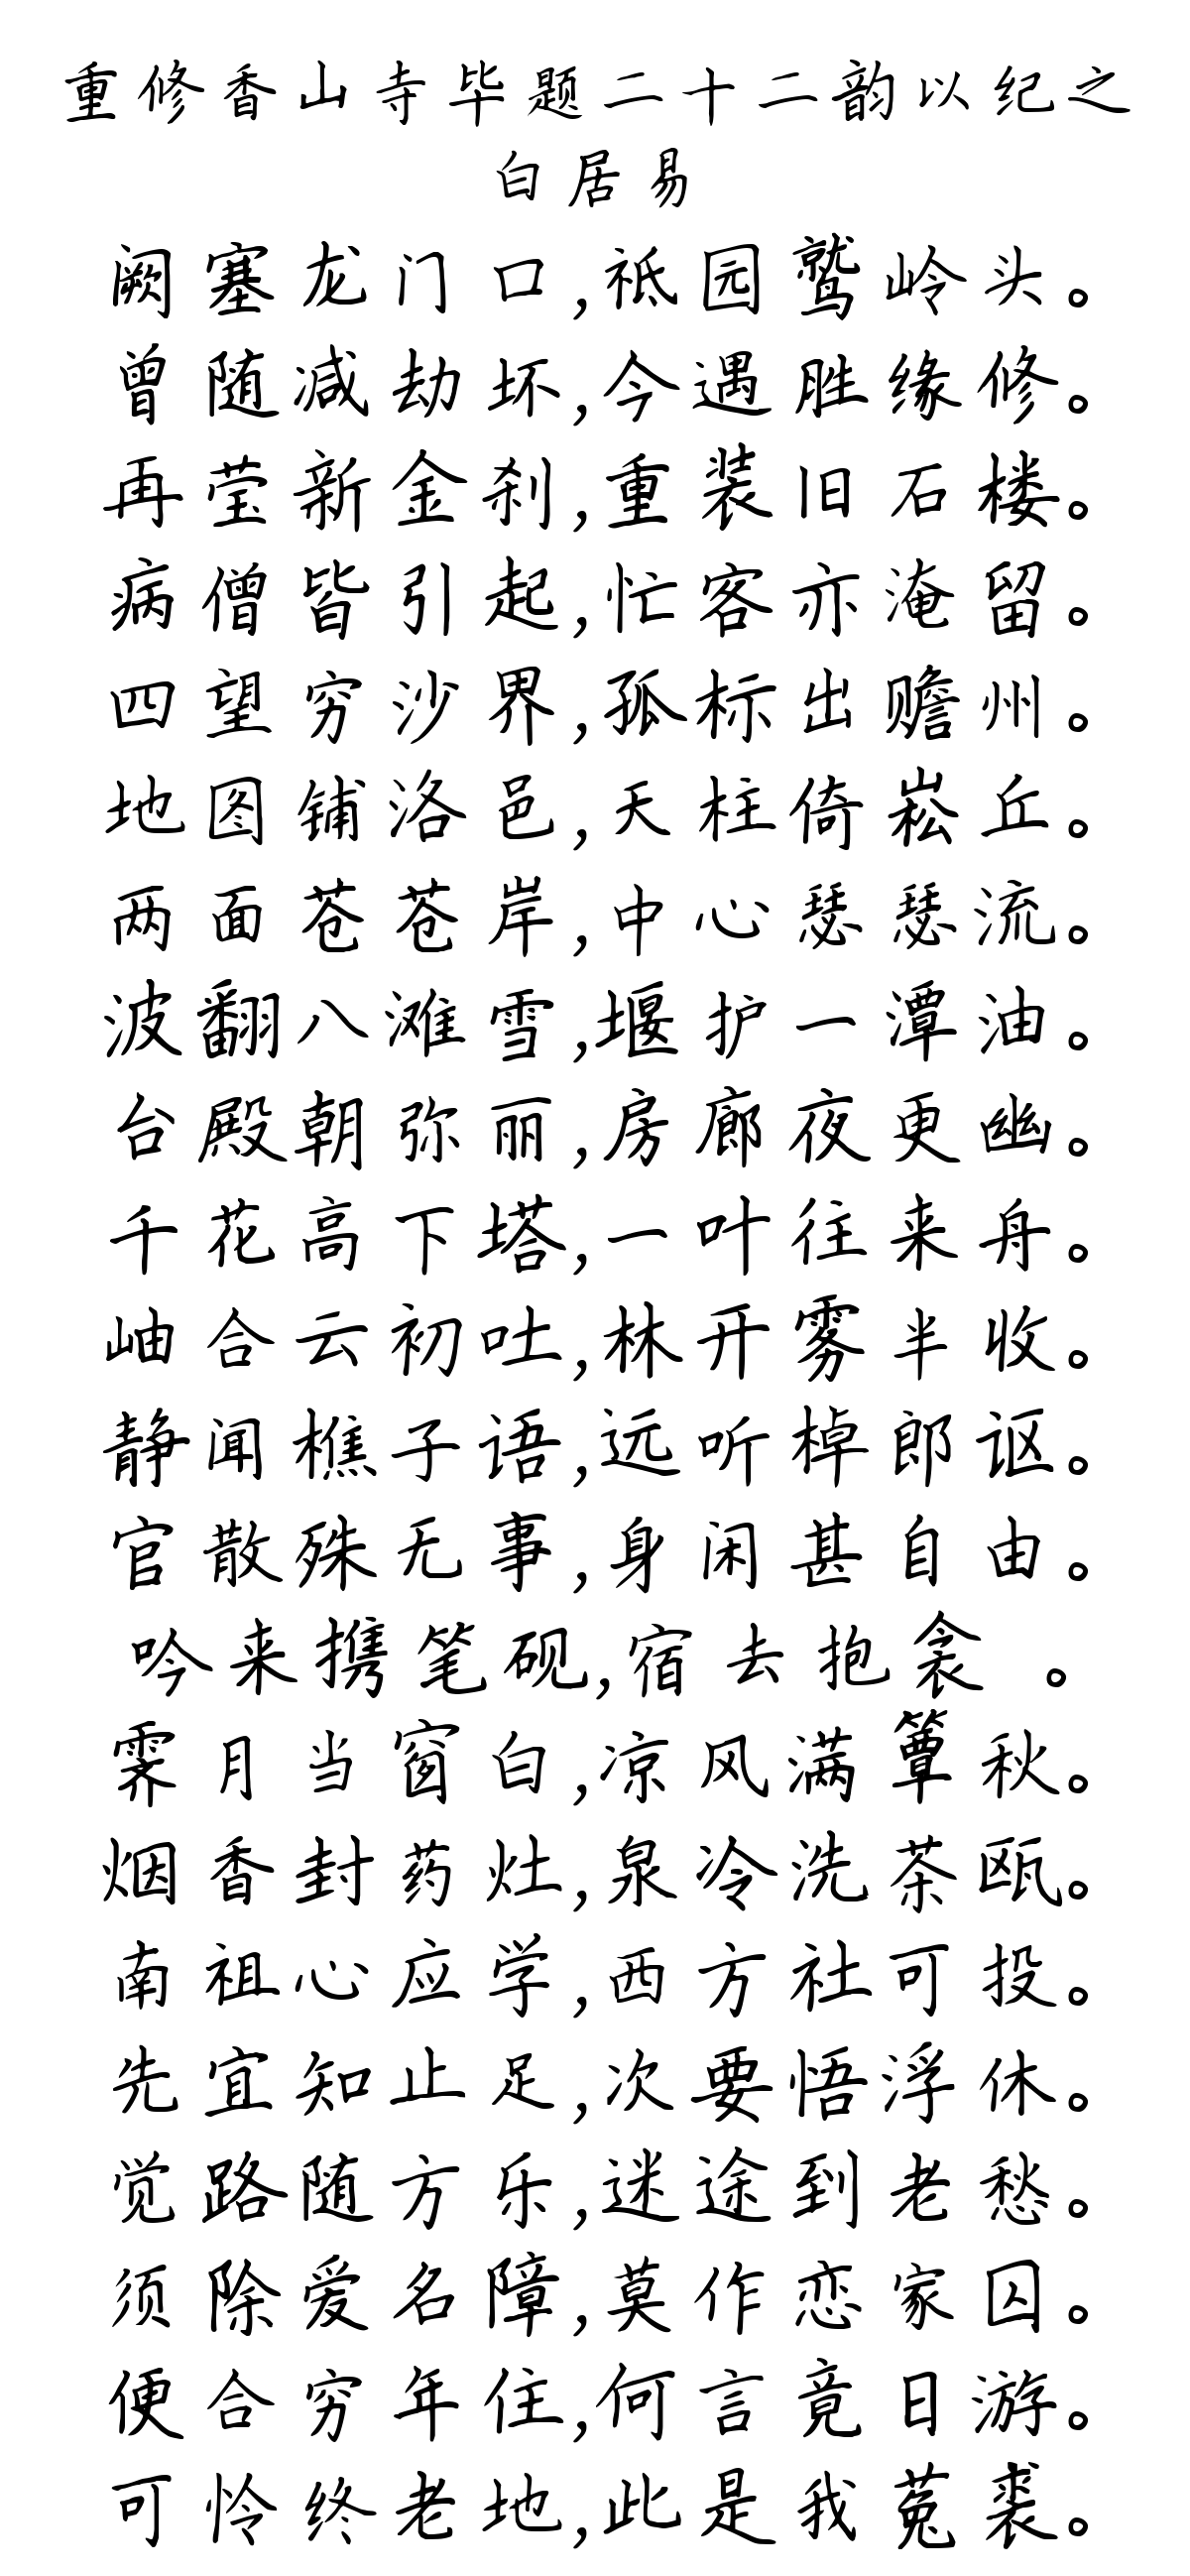 重修香山寺毕题二十二韵以纪之
白居易
阙塞龙门口,祗园鹫岭头。
曾随减劫坏,今遇胜缘修。
再莹新金刹,重装旧石楼。
病僧皆引起,忙客亦淹留。
四望穷沙界,孤标出赡州。
地图铺洛邑,天柱倚崧丘。
两面苍苍岸,中心瑟瑟流。
波翻八滩雪,堰护一潭油。
台殿朝弥丽,房廊夜更幽。
千花高下塔,一叶往来舟。
岫合云初吐,林开雾半收。
静闻樵子语,远听棹郎讴。
官散殊无事,身闲甚自由。
吟来携笔砚,宿去抱衾 。
霁月当窗白,凉风满簟秋。
烟香封药灶,泉冷洗茶瓯。
南祖心应学,西方社可投。
先宜知止足,次要悟浮休。
觉路随方乐,迷途到老愁。
须除爱名障,莫作恋家囚。
便合穷年住,何言竟日游。
可怜终老地,此是我菟裘。